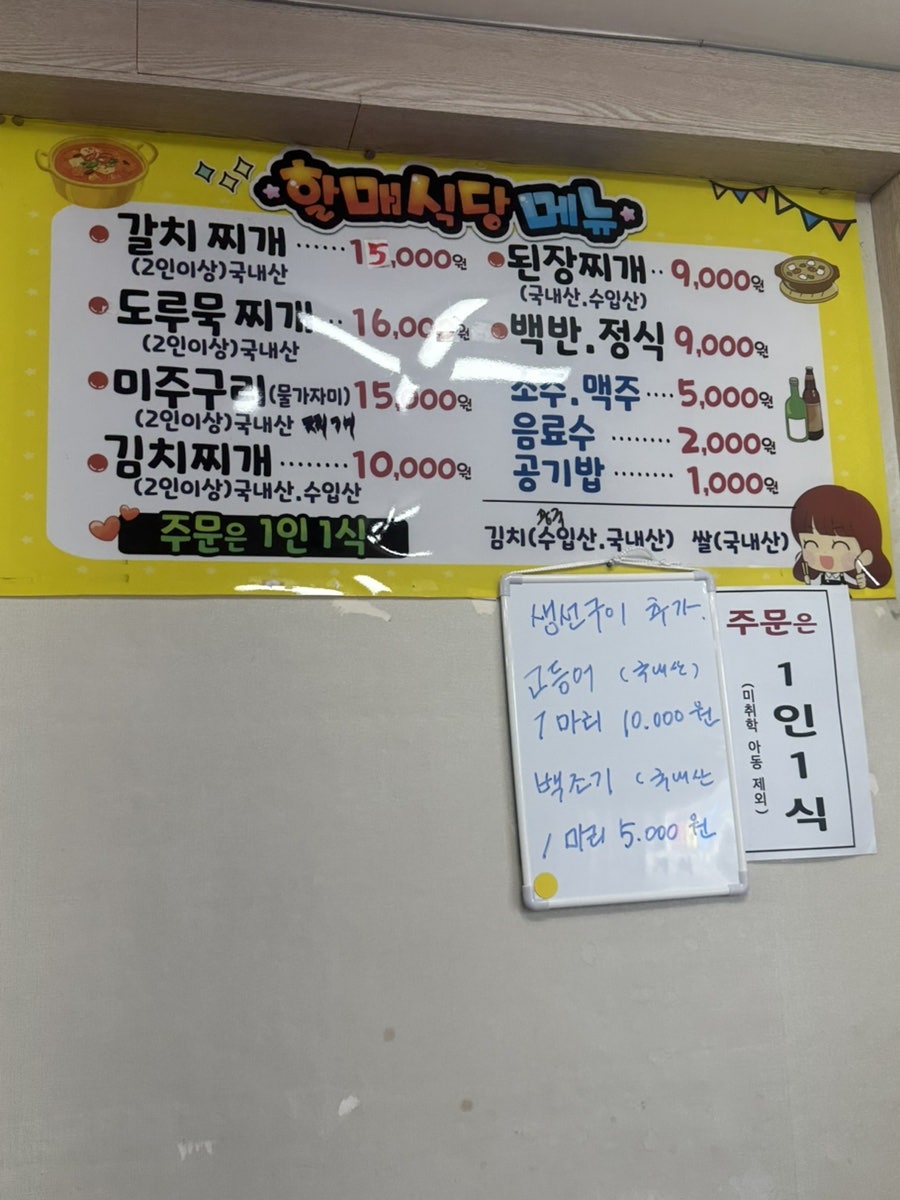 할매식당 메뉴
갈치 찌개 ······ 15,000원
(2인이상)국내산
도루묵 찌개 ·· 16,000원
(2인이상)국내산
미주구리(물가자미) 15,000원
(2인이상)국내산 찌개
김치찌개 ········ 10,000원
(2인이상)국내산.수입산
주문은 1인 1식
된장찌개 ·· 9,000원
(국내산.수입산)
백반.정식 9,000원
소주.맥주 ···· 5,000원
음료수 ········ 2,000원
공기밥 ········ 1,000원
김치(수입산.국내산) 쌀(국내산)
생선구이 추가.
고등어 (국내산)
1 마리 10.000원
백조기 (국내산
1 마리 5.000원
주문은
1인1식
(미취학 아동 제외)